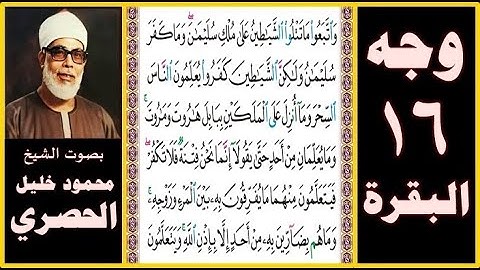 وجه
١٦
البقرة
وَاتَّبَعُوا مَا تَتْلُوا الشَّيَاطِينُ عَلَىٰ مُلْكِ سُلَيْمَٰنَ ۖ وَمَا كَفَرَ
سُلَيْمَٰنُ وَلَٰكِنَّ الشَّيَٰطِينَ كَفَرُوا يُعَلِّمُونَ النَّاسَ
السِّحْرَ وَمَا أُنزِلَ عَلَى الْمَلَكَيْنِ بِبَابِلَ هَٰرُوتَ وَمَٰرُوتَ ۚ
وَمَا يُعَلِّمَانِ مِنْ أَحَدٍ حَتَّىٰ يَقُولَا إِنَّمَا نَحْنُ فِتْنَةٌ فَلَا تَكْفُرْ ۖ
فَيَتَعَلَّمُونَ مِنْهُمَا مَا يُفَرِّقُونَ بِهِۦ بَيْنَ الْمَرْءِ وَزَوْجِهِۦ ۚ
وَمَا هُم بِضَارِّينَ بِهِۦ مِنْ أَحَدٍ إِلَّا بِإِذْنِ اللَّهِ ۚ وَيَتَعَلَّمُونَ
بصوت الشيخ
محمود خليل
الحصري